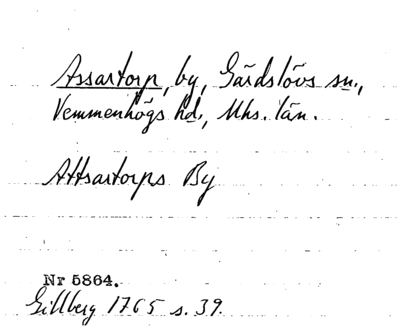 Assartorp, by, Gärdslövs sn.,
Vemmenhögs hd., Mhs. län.
Attsartorps By
Nr 5864.
Gillberg 1765 s. 39.